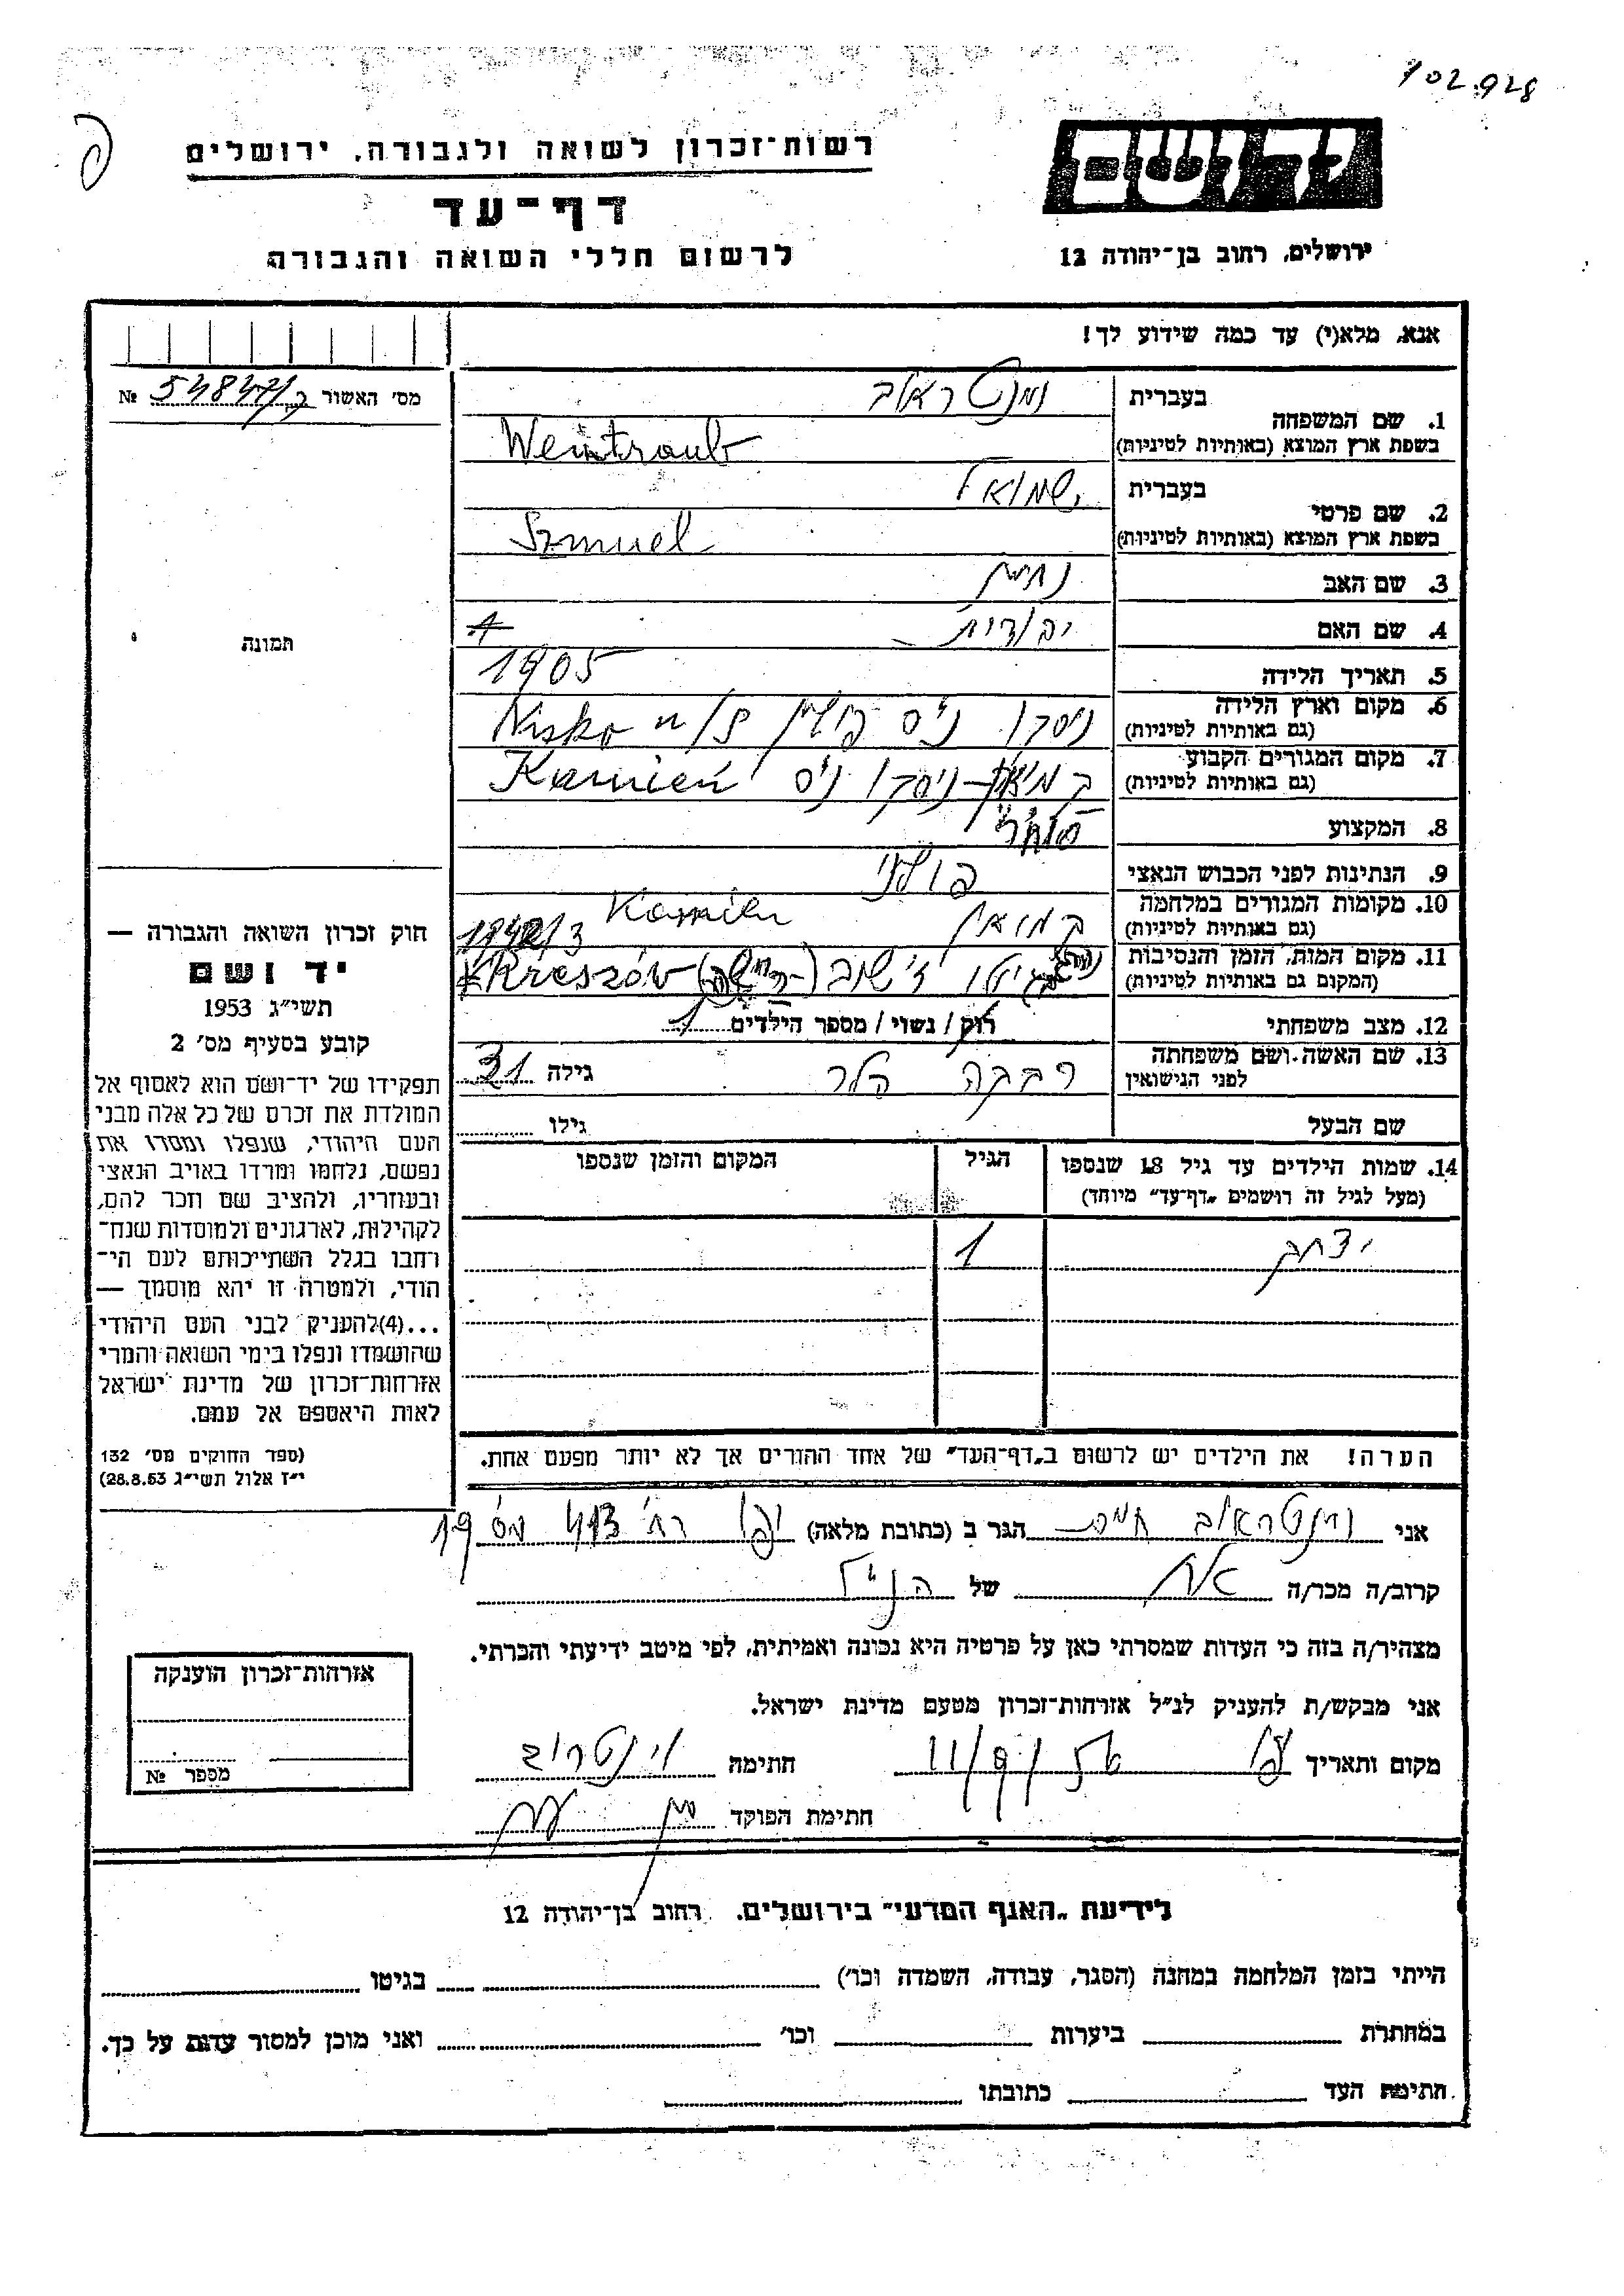 102.928
רשות־זכרון לשואה ולגבורה. ירושלים
דף־עד
לרשום חללי השואה והגבורה
ידושם
ירושלים, רחוב בן־יהודה 12
אנא, מלא(י) עד כמה שידוע לך!
מס' האשור № 54847/ק
1. שם המשפחה
בעברית
בשפת ארץ המוצא (באותיות לטיניות)
Weintraub
2. שם פרטי
בעברית שמואל
בשפת ארץ המוצא (באותיות לטיניות)
Szmuel
3. שם האב נחמן
4. שם האם יהודית
5. תאריך הלידה 1905
6. מקום וארץ הלידה
(גם באותיות לטיניות)
ניסקו פולין Nisko n/S
7. מקום המגורים הקבוע
(גם באותיות לטיניות)
ניסקו Kamień
8. המקצוע סוחר
9. הנתינות לפני הכבוש הנאצי פולני
10. מקומות המגורים במלחמה
(גם באותיות לטיניות)
Kamień
11. מקום המות, הזמן והנסיבות
(המקום גם באותיות לטיניות)
1942/3
Kreszów
12. מצב משפחתי רוק / נשוי / מספר הילדים 1
13. שם האשה ושם משפחתה
לפני הנישואין
רבקה הלר גילה 31
שם הבעל גילו
14. שמות הילדים עד גיל 18 שנספו
(מעל לגיל זה רושמים „דף־עד" מיוחד)
הגיל
המקום והזמן שנספו
יצחק 1
הערה! את הילדים יש לרשום ב„דף־העד" של אחד ההורים אך לא יותר מפעם אחת.
תמונה
חוק זכרון השואה והגבורה —
יד ושם
תשי״ג 1953
קובע בסעיף מס' 2
תפקידו של יד־ושם הוא לאסוף אל
המולדת את זכרם של כל אלה מבני
העם היהודי, שנפלו ומסרו את
נפשם, נלחמו ומרדו באויב הנאצי
ובעוזריו, ולהציב שם וזכר להם,
לקהילות, לארגונים ולמוסדות שנח־
רחבו בגלל השתייכותם לעם הי־
הודי, ולמטרה זו יהא מוסמך —
...(4)להעניק לבני העם היהודי
שהושמדו ונפלו בימי השואה והמרי
אזרחות־זכרון של מדינת ישראל
לאות היאספם אל עמם.
(ספר החוקים מס' 132
י״ז אלול תשי״ג 28.8.53)
אני וינטראוב הגר ב (כתובת מלאה) יפו רח' 413 מס' 19
קרוב/ה מכר/ה אח של הנ״ל
מצהיר/ה בזה כי העדות שמסרתי כאן על פרטיה היא נכונה ואמיתית, לפי מיטב ידיעתי והכרתי.
אני מבקש/ת להעניק לנ״ל אזרחות־זכרון מטעם מדינת ישראל.
מקום ותאריך יפו חתימה וינטרוב
חתימת הפוקד
אזרחות־זכרון הוענקה
מספר №
לידיעת „האנף המדעי" בירושלים. רחוב בן־יהודה 12
הייתי בזמן המלחמה במחנה (הסגר, עבודה, השמדה וכו') בגיטו
במחתרת ביערות וכו' ואני מוכן למסור עדות על כך.
חתימת העד כתובתו